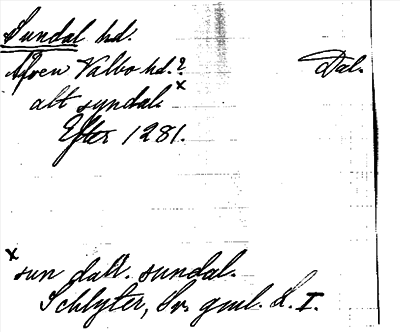 Sundal hd.
Äfven Valbo hd.? Dal.
alt syndal x
Efter 1281.
x
sun dalr. sundal.
Schlyter, Sv. gml. L. I.